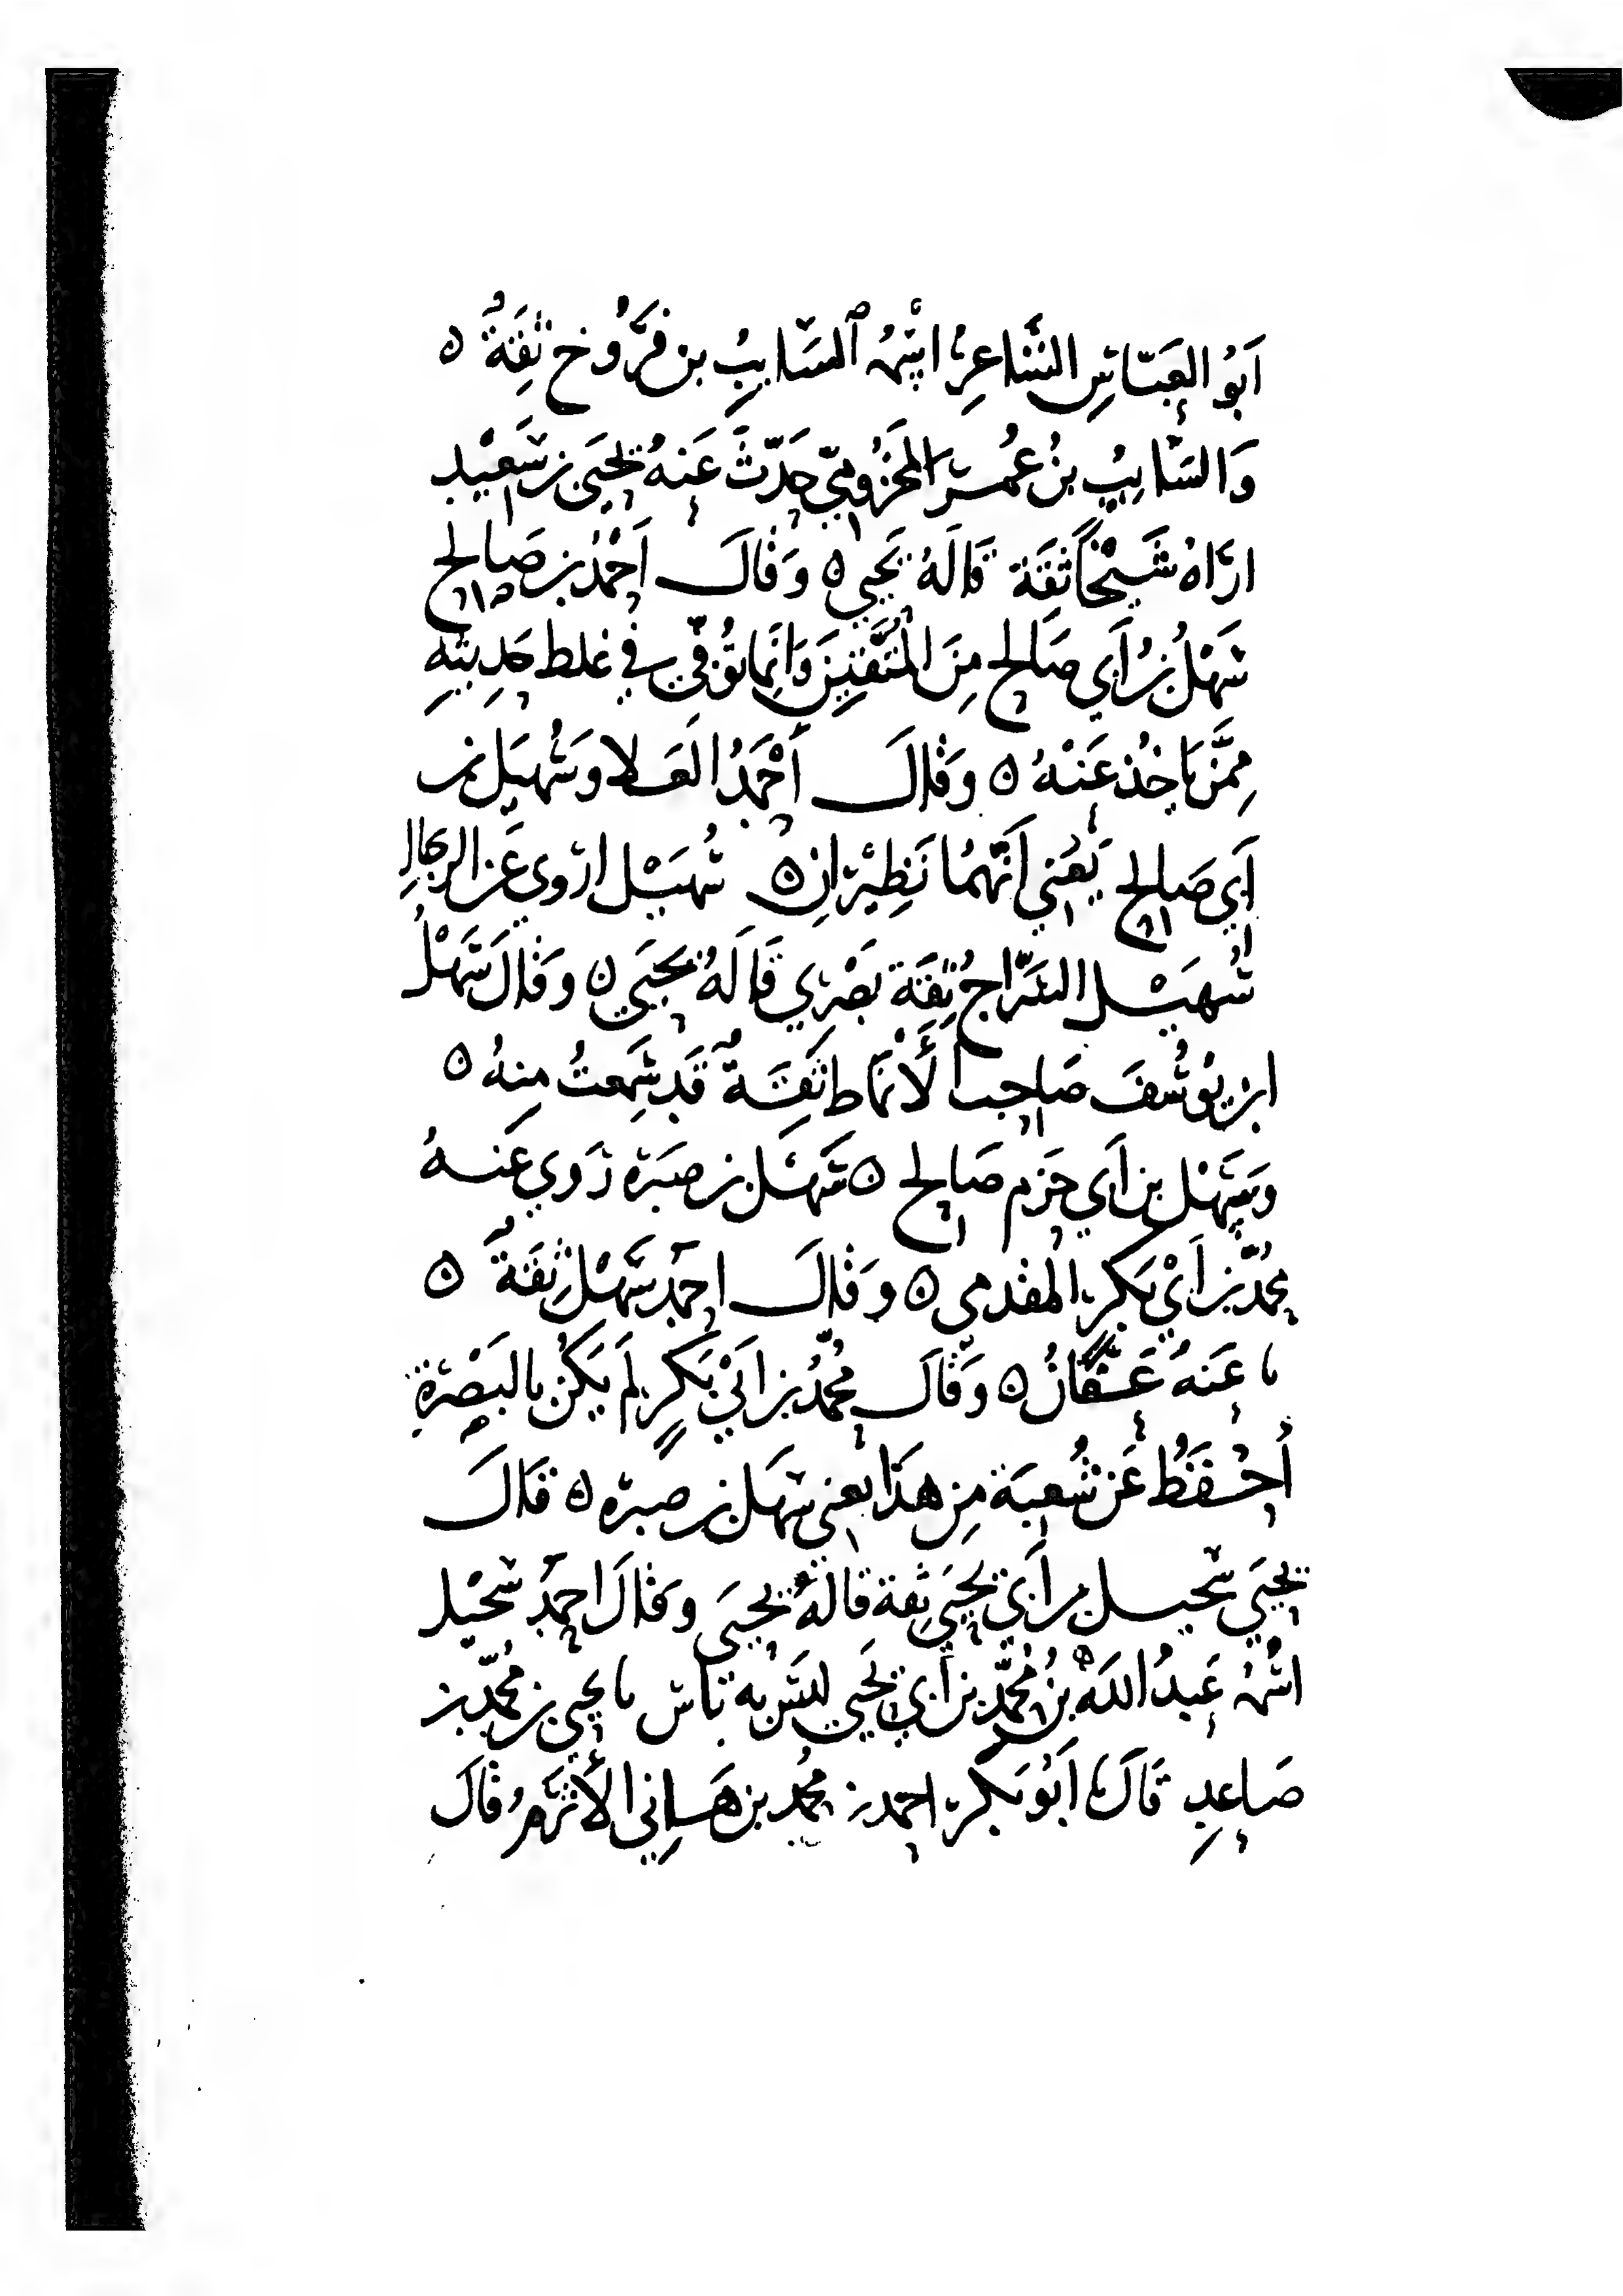 اَبُو العَبّاسِ الشَّاعِرُ اسْمُهُ السَّايبُ بن فَرُّوخ ثِقَةٌ ه
وَالسَّايِبُ بنُ عُمَر المَخزُومِيّ حَدَّثَ عَنهُ يَحيَى بن سَعِيدٍ
ارَاهُ شَيْخًا ثِقَة قَالَهُ يَحيي ه وَقَالَ اَحْمَدُ بن صَالح
سُهَيْلُ بنُ أَبي صَالحٍ مِنَ المُتقَنِينَ وَانَّمَا تُوُقِّيَ في غلط حَدِيثهِ
مِمَّن يَاخُذ عَنْهُ ه وَقَالَ أَحْمَدُ العَلا وَسُهَيل بن
أَبي صَالح يَعْنِي أَنَّهُمَا نَظِيْرَانِ ه سُهَيْل اروَى عَن الرجَالِ
سُهَيْل السَّرّاجُ ثِقَة بَصْرِي قَالَهُ يَحيَي ه وَقَالَ سَهْلُ
ابن يُوسُفَ صَاحِب الأَنمَاط ثِقَةٌ قَد سَمِعتُ مِنهُ ه
وَسَهْل بن أَبي حَزم صَالح ه سَهْل بن صبَرَة رَوي عَنهُ
مُحَمَّد بن أَبي بَكرٍ المقدمي ه وَقَالَ احمَد سَهْل ثِقَةٌ ه
نا عَنهُ عَفَّانُ ه وَقَالَ مُحَمَّدُ بن أَبي بَكرٍ لَم يَكُن بالبَصْرَةِ
أَحْفَظُ عَن شُعبَة مِن هَذَا يَعني سَهْل بن صبرَه ه قَالَ
يَحيَي سَحبل بن أَبي يَحيَي ثِقة قالهُ يَحيَي وَقَالَ احمَدُ سَحْبل
اسْمُهُ عَبدُ اللهِ بنُ مُحَمَّد بن أَبي يَحيَي ليسَ به بَاس نا يحيي بن مُحَمَّد بن
صَاعدٍ قَالَ نا أَبُو بَكر احمد بن مُحَمد بن هَاني الأَثرَمُ قالَ